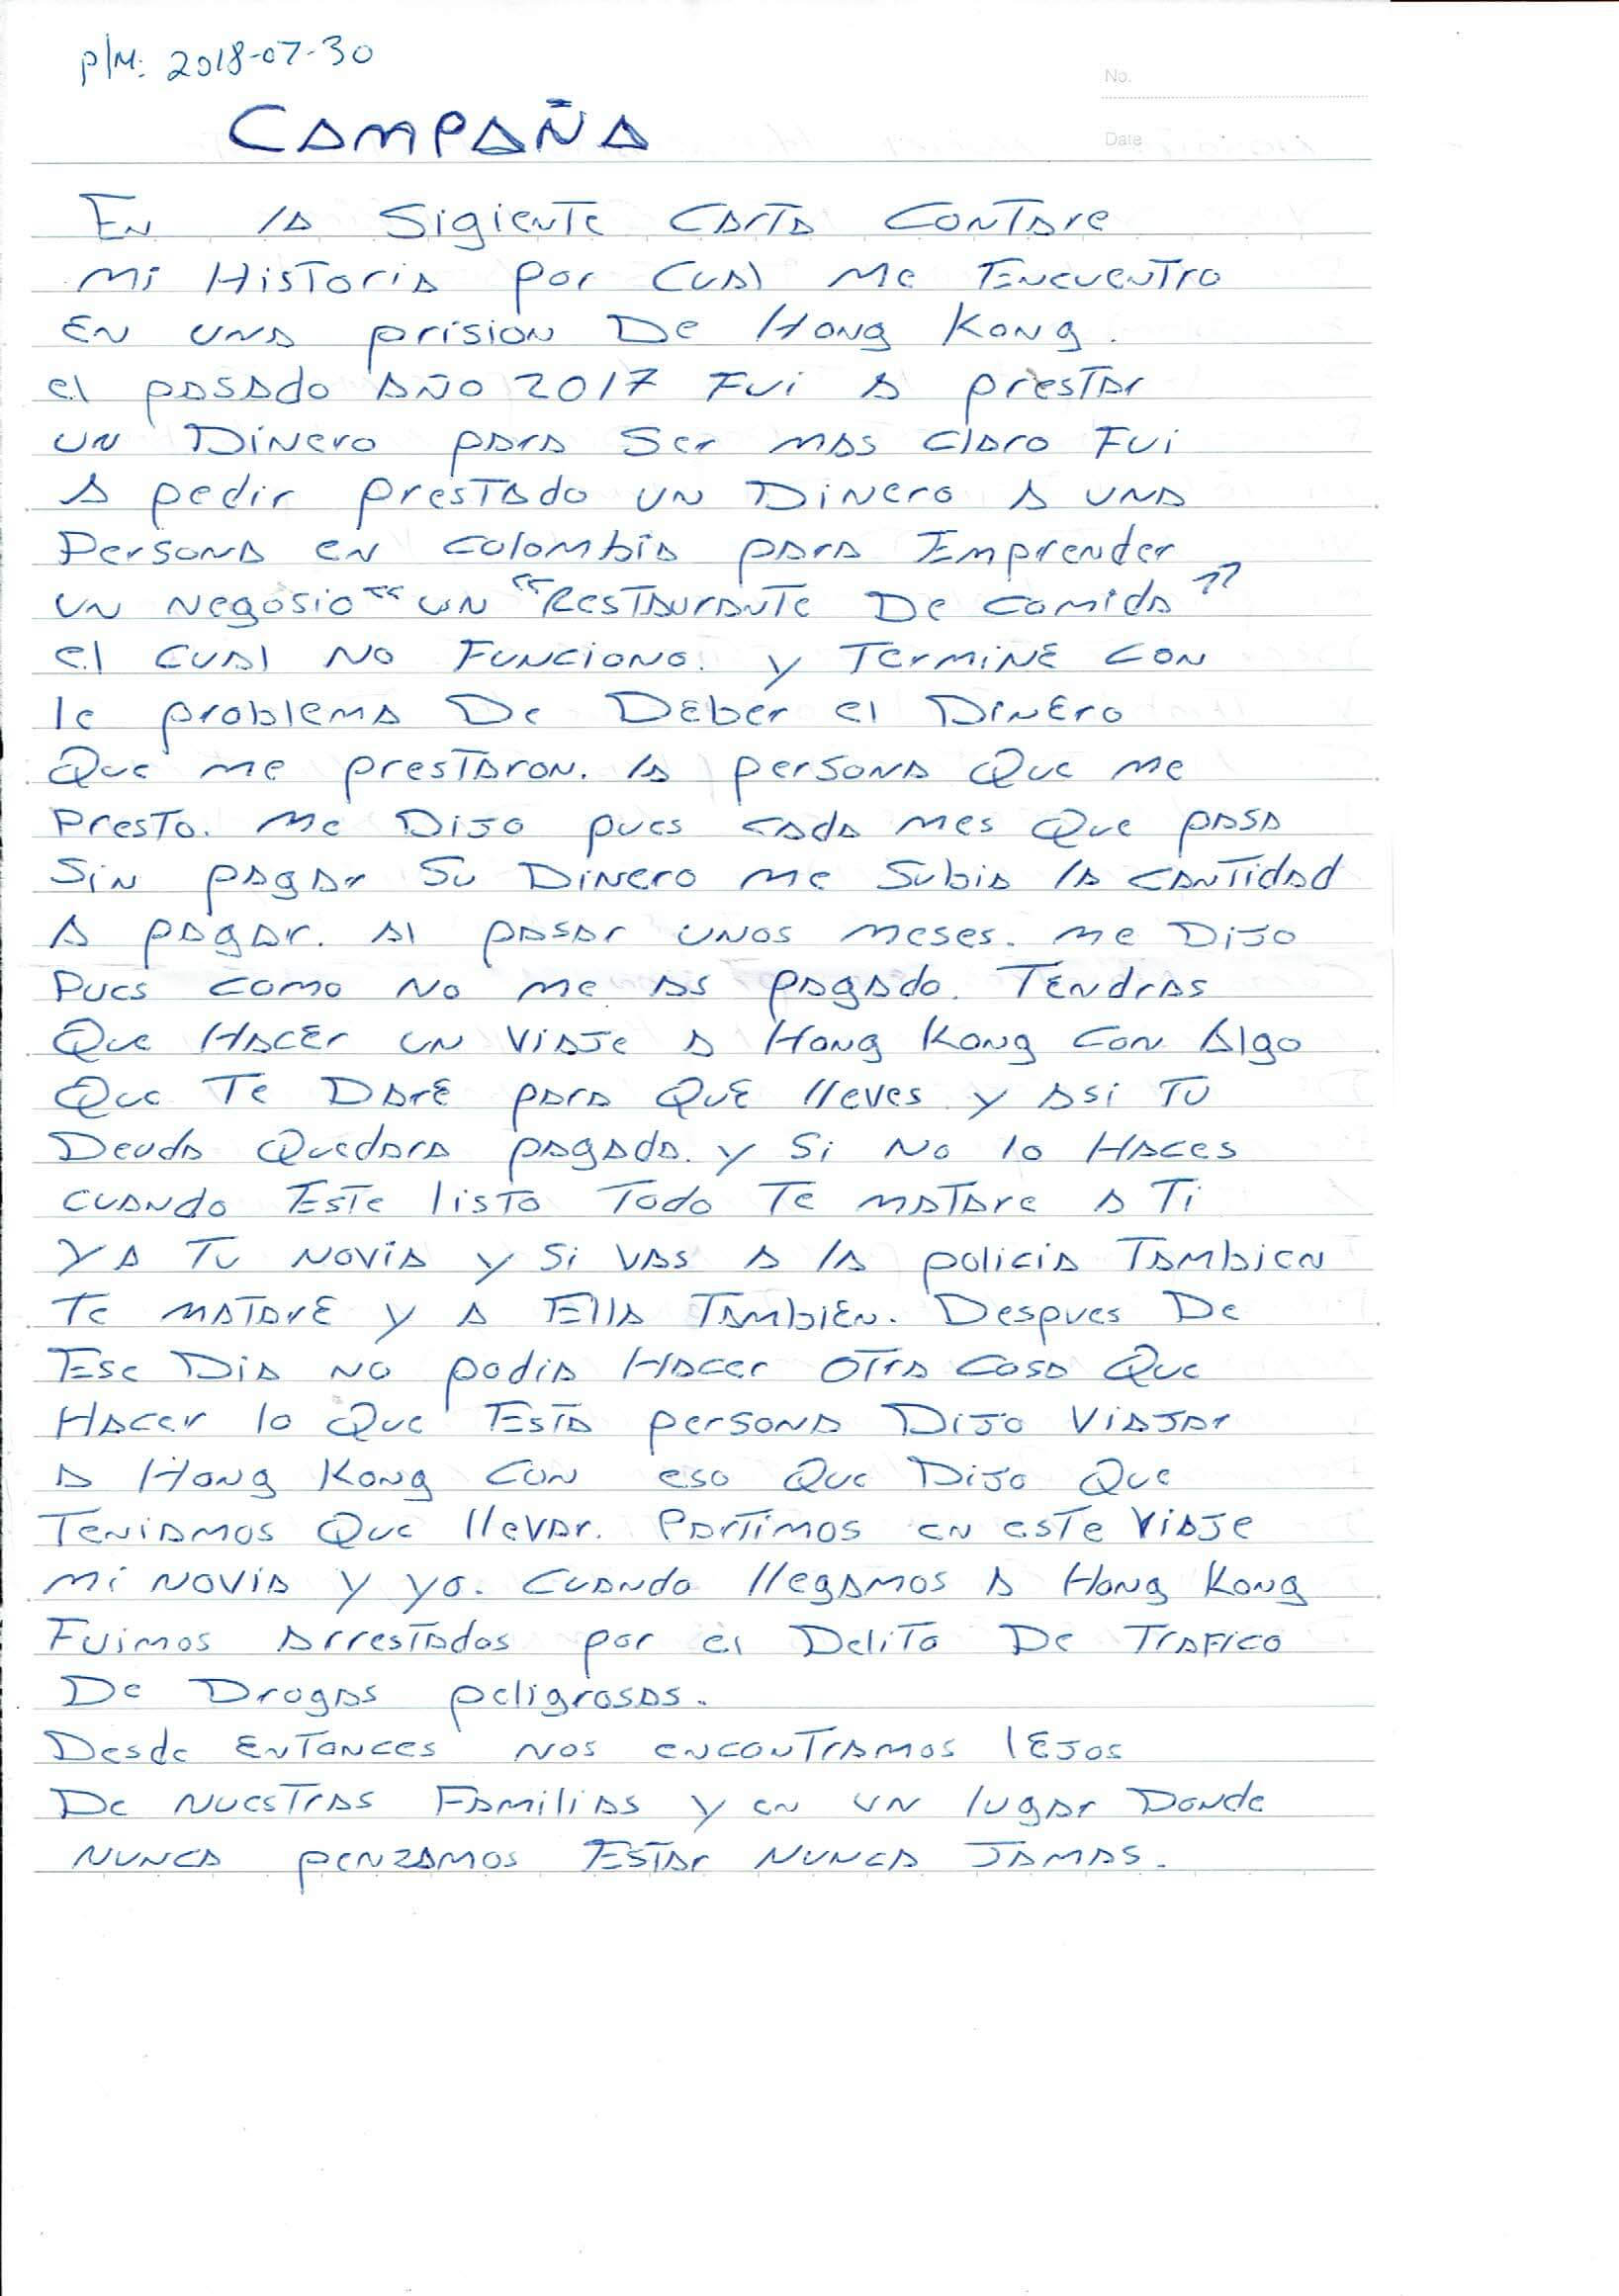 P/M: 2018-07-30
No.
CAMPAÑA
Date
EN la Sigiente Carta Contare
Mi Historia por Cual Me Encuentro
EN una prision De Hong Kong.
el pasado Año 2017 Fui A prestar
un Dinero para Ser mas claro Fui
A pedir prestado un Dinero A una
Persona en colombia para Emprender
un negosio “ un “Restaurante De comida”
el cual No Funciono. y Termine con
le problema De Deber el Dinero
Que me prestaron. la persona Que me
Presto. Me Dijo pues cada mes Que pasa
Sin pagar Su Dinero me Subia la cantidad
A pagar. Al pasar unos meses. me Dijo
Pues como No me as pagado. Tendras
Que Hacer un viaje a Hong Kong con Algo
Que Te Daré para Que lleves y asi Tu
Deuda Quedara pagada. y Si No lo Haces
cuando Este listo Todo Te matare a Ti
Y a Tu Novia y Si vas a la policia Tambien
Te mataré y a Ella Tambien. Despues De
Ese Dia no podia Hacer otra cosa Que
Hacer lo Que Esta persona Dijo viajar
a Hong Kong con eso Que Dijo Que
Teniamos Que llevar. Partimos en este viaje
mi novia y yo. cuando llegamos a Hong Kong
Fuimos Arrestados por el Delito De Trafico
De Drogas peligrosas.
Desde Entonces nos encontramos lejos
De nuestras Familias y en un lugar Donde
nunca penzamos Estar nunca Jamas.